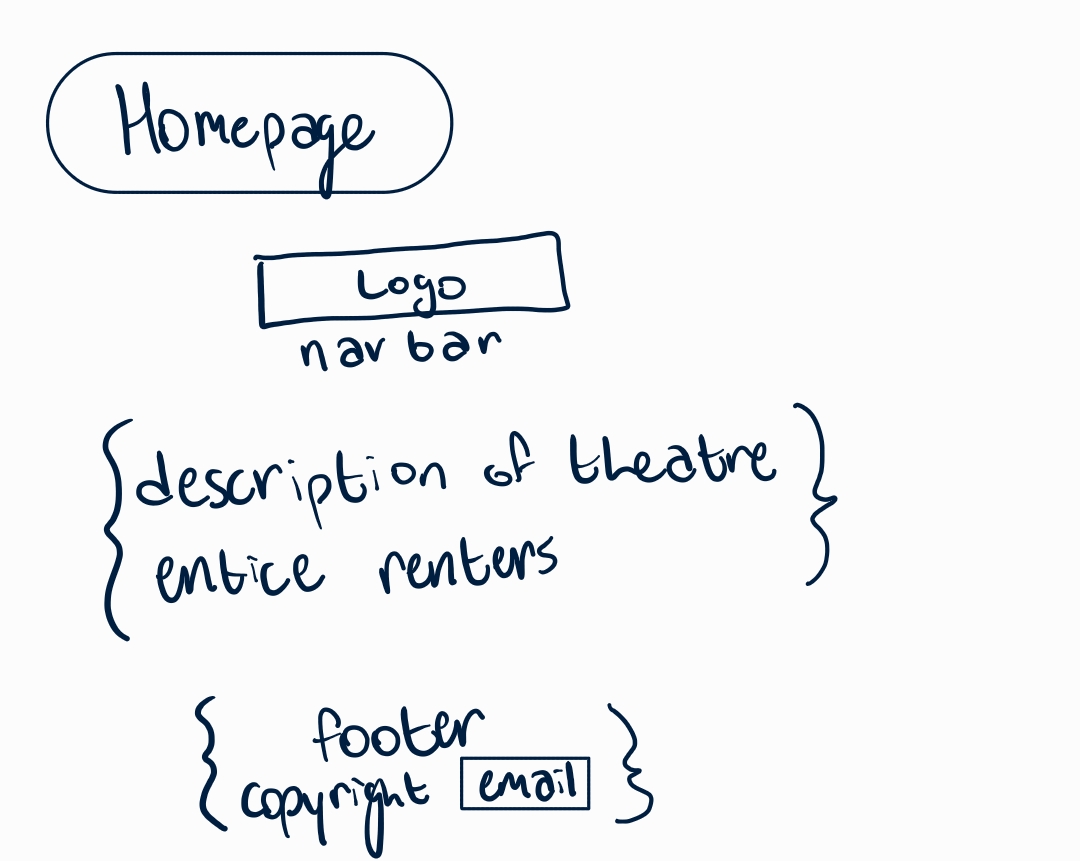 Homepage
Logo
nav bar
description of theatre
entice renters
footer
copyright email